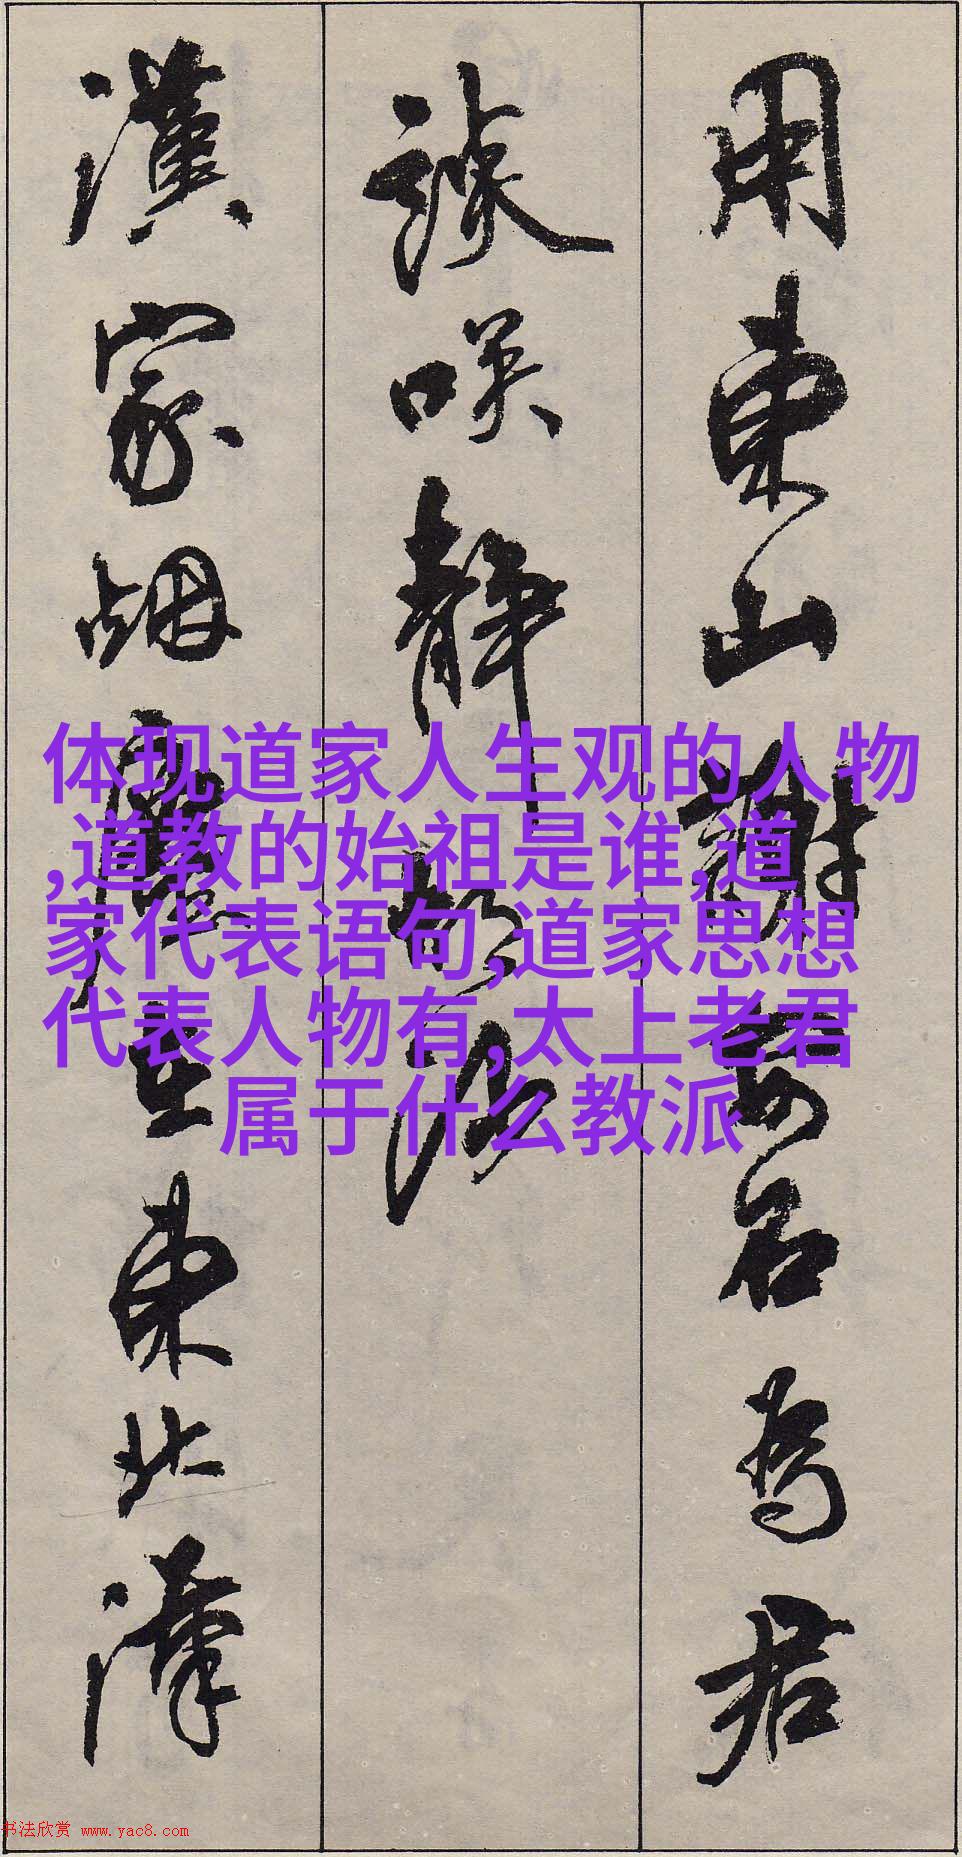 用東山謝安石為君
談咲靜胡沙
漢家烟塵在東北漢
体现道家人生观的人物
,道教的始祖是谁,道
家代表语句,道家思想
代表人物有,太上老君
属于什么教派
书法欣赏 www.yac8.com